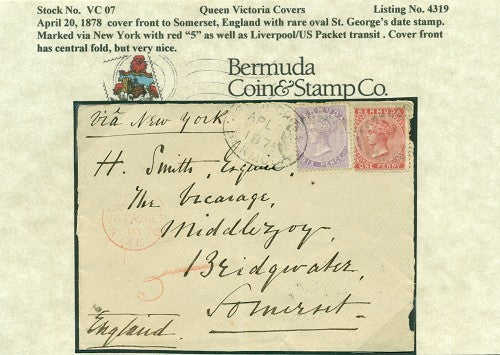 Stock No. VC 07 Queen Victoria Covers Listing No. 4319
April 20, 1878 cover front to Somerset, England with rare oval St. George's date stamp.
Marked via New York with red "5" as well as Liverpool/US Packet transit . Cover front
has central fold, but very nice.
Bermuda
Coin&Stamp Co.
Viâ New York
APL
187
BERMUDA
SIX PENCE
ONE PENNY
H. Smith, Esquire
The Vicarage,
Middlezoy
Bridgwater
Somerset.
England.
5